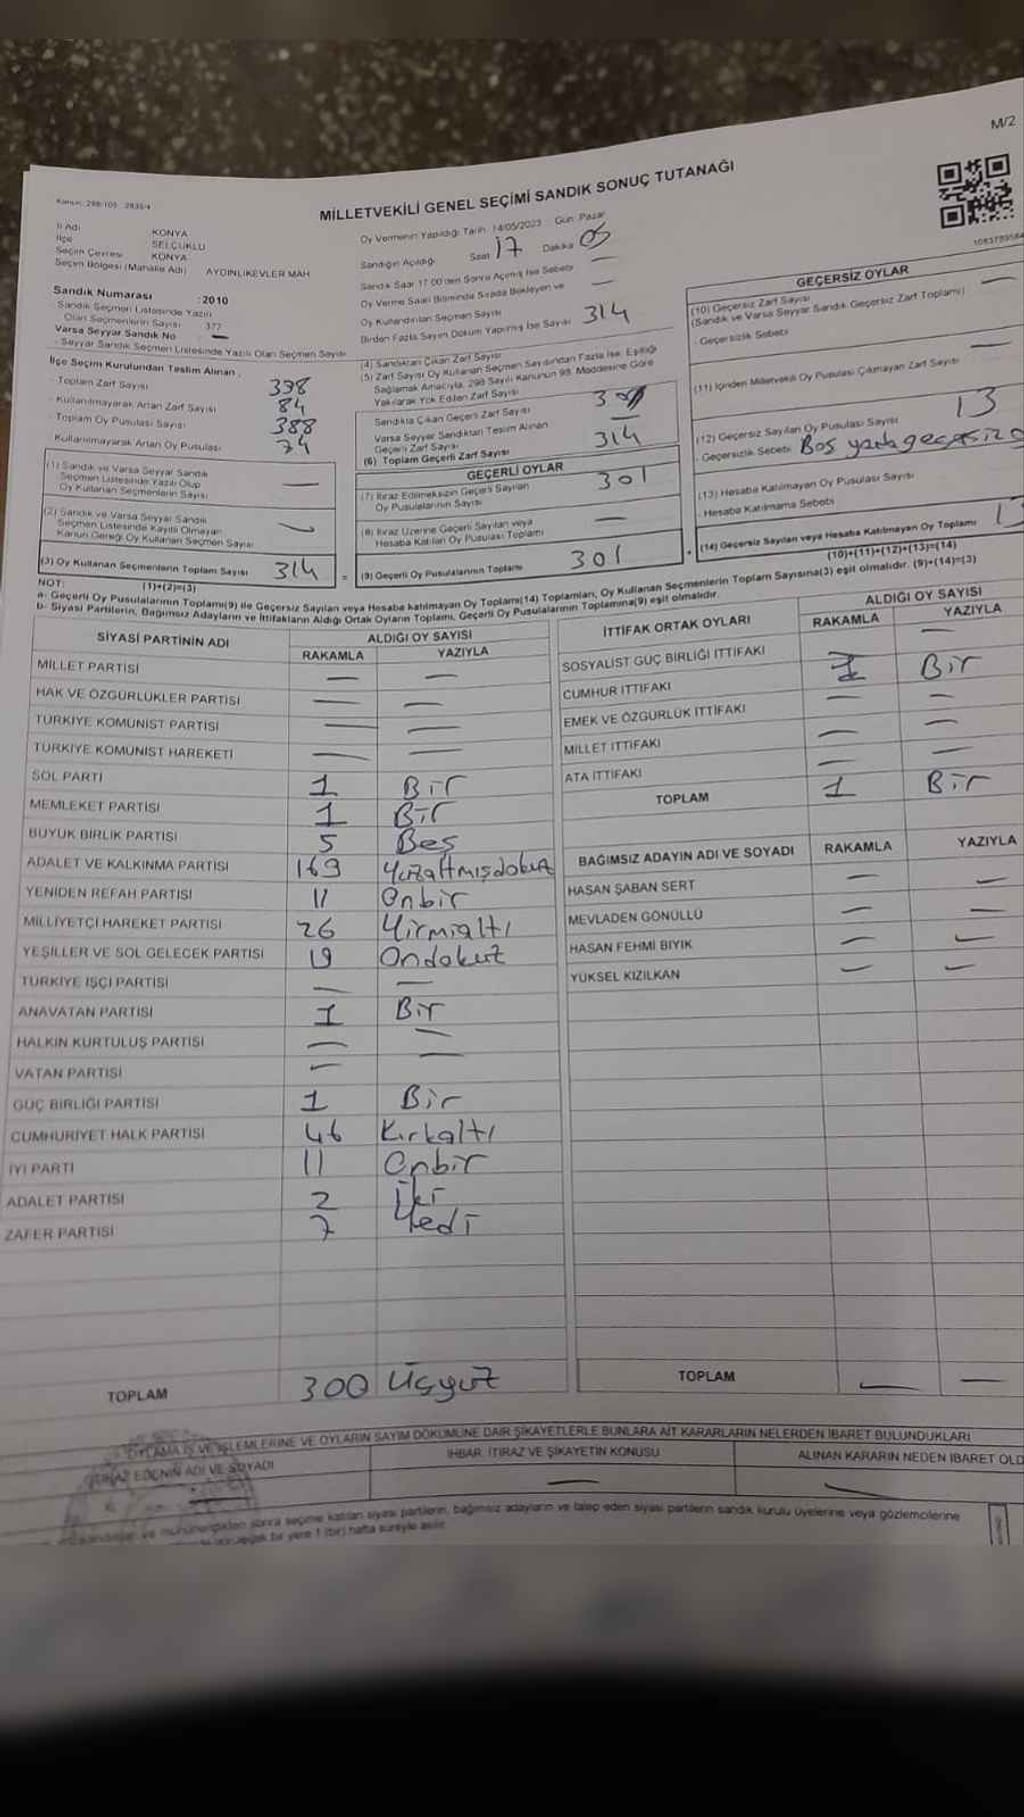 M/2
MİLLETVEKİLİ GENEL SEÇİMİ SANDIK SONUÇ TUTANAĞI
İl Adı KONYA
İlçe SELÇUKLU
Seçim Çevresi KONYA
Seçim Bölgesi (Mahalle Adı) AYDINLIKEVLER MAH
Sandık Numarası : 2010
Sandık Seçmen Listesinde Yazılı
Olan Seçmenlerin Sayısı 377
Varsa Seyyar Sandık No —
- Seyyar Sandık Seçmen Listesinde Yazılı Olan Seçmen Sayısı
İlçe Seçim Kurulundan Teslim Alınan :
- Toplam Zarf Sayısı 398
- Kullanılmayarak Artan Zarf Sayısı 84
- Toplam Oy Pusulası Sayısı 388
Kullanılmayarak Artan Oy Pusulası 74
(1) Sandık ve Varsa Seyyar Sandık
Seçmen Listesinde Yazılı Olup
Oy Kullanan Seçmenlerin Sayısı —
(2) Sandık ve Varsa Seyyar Sandık
Seçmen Listesinde Kayıtlı Olmayan
Kanun Gereği Oy Kullanan Seçmen Sayısı —
(3) Oy Kullanan Seçmenlerin Toplam Sayısı 314
(1)+(2)=(3)
Oy Vermenin Yapıldığı Tarih : 14/05/2023 Gün: Pazar
Sandığın Açıldığı Saat 17 Dakika 05
Sandık Saat 17.00'den Sonra Açılmış İse Sebebi —
Oy Verme Saati Bitiminde Sırada Bekleyen ve
Oy Kullandırılan Seçmen Sayısı —
Birden Fazla Sayım Döküm Yapılmış İse Sayısı
(4) Sandıktan Çıkan Zarf Sayısı 314
(5) Zarf Sayısı Oy Kullanan Seçmen Sayısından Fazla İse, Eşitliği
Sağlamak Amacıyla, 298 Sayılı Kanunun 98. Maddesine Göre
Yakılarak Yok Edilen Zarf Sayısı
Sandıkta Çıkan Geçerli Zarf Sayısı
Varsa Seyyar Sandıktan Teslim Alınan
Geçerli Zarf Sayısı —
(6) Toplam Geçerli Zarf Sayısı 314
GEÇERLİ OYLAR
(7) İtiraz Edilmeksizin Geçerli Sayılan
Oy Pusulalarının Sayısı 301
(8) İtiraz Üzerine Geçerli Sayılan veya
Hesaba Katılan Oy Pusulası Toplamı —
(9) Geçerli Oy Pusulalarının Toplamı 301
GEÇERSİZ OYLAR
(10) Geçersiz Zarf Sayısı
(Sandık ve Varsa Seyyar Sandık Geçersiz Zarf Toplamı) —
- Geçersizlik Sebebi
(11) İçinden Milletvekili Oy Pusulası Çıkmayan Zarf Sayısı —
(12) Geçersiz Sayılan Oy Pusulası Sayısı 13
- Geçersizlik Sebebi Boş yada geçersiz
(13) Hesaba Katılmayan Oy Pusulası Sayısı
- Hesaba Katılmama Sebebi
(14) Geçersiz Sayılan veya Hesaba Katılmayan Oy Toplamı
(10)+(11)+(12)+(13)=(14)
NOT:
a- Geçerli Oy Pusulalarının Toplamı(9) ile Geçersiz Sayılan veya Hesaba katılmayan Oy Toplamı(14) Toplamları, Oy Kullanan Seçmenlerin Toplam Sayısına(3) eşit olmalıdır. (9)+(14)=(3)
b- Siyasi Partilerin, Bağımsız Adayların ve İttifakların Aldığı Ortak Oyların Toplamı, Geçerli Oy Pusulalarının Toplamına(9) eşit olmalıdır.
SİYASİ PARTİNİN ADI ALDIĞI OY SAYISI
RAKAMLA YAZIYLA
MİLLET PARTİSİ — —
HAK VE ÖZGÜRLÜKLER PARTİSİ — —
TÜRKİYE KOMÜNİST PARTİSİ — —
TÜRKİYE KOMÜNİST HAREKETİ — —
SOL PARTİ 1 Bir
MEMLEKET PARTİSİ 1 Bir
BÜYÜK BİRLİK PARTİSİ 5 Beş
ADALET VE KALKINMA PARTİSİ 169 Yüzaltmışdokuz
YENİDEN REFAH PARTİSİ 11 Onbir
MİLLİYETÇİ HAREKET PARTİSİ 26 Yirmialtı
YEŞİLLER VE SOL GELECEK PARTİSİ 19 Ondokuz
TÜRKİYE İŞÇİ PARTİSİ — —
ANAVATAN PARTİSİ 1 Bir
HALKIN KURTULUŞ PARTİSİ — —
VATAN PARTİSİ — —
GÜÇ BİRLİĞİ PARTİSİ 1 Bir
CUMHURİYET HALK PARTİSİ 46 Kırkaltı
İYİ PARTİ 11 Onbir
ADALET PARTİSİ 2 İki
ZAFER PARTİSİ 7 Yedi
TOPLAM 300 Üçyüz
İTTİFAK ORTAK OYLARI ALDIĞI OY SAYISI
RAKAMLA YAZIYLA
SOSYALİST GÜÇ BİRLİĞİ İTTİFAKI —
CUMHUR İTTİFAKI 1 Bir
EMEK VE ÖZGÜRLÜK İTTİFAKI — —
MİLLET İTTİFAKI — —
ATA İTTİFAKI — —
TOPLAM 1 Bir
BAĞIMSIZ ADAYIN ADI VE SOYADI RAKAMLA YAZIYLA
HASAN ŞABAN SERT — —
MEVLADEN GÖNÜLLÜ — —
HASAN FEHMİ BIYIK — —
YÜKSEL KIZILKAN — —
TOPLAM — —
OYLAMA İŞ VE İŞLEMLERİNE VE OYLARIN SAYIM DÖKÜMÜNE DAİR ŞİKAYETLERLE BUNLARA AİT KARARLARIN NELERDEN İBARET BULUNDUKLARI
İTİRAZ EDENİN ADI VE SOYADI İHBAR, İTİRAZ VE ŞİKAYETİN KONUSU ALINAN KARARIN NEDEN İBARET OLD
— — —
sonra seçime katılan siyasi partilerin, bağımsız adayların ve talep eden siyasi partilerin sandık kurulu üyelerine veya gözlemcilerine
bir yere 1 (bir) hafta süreyle asılır.